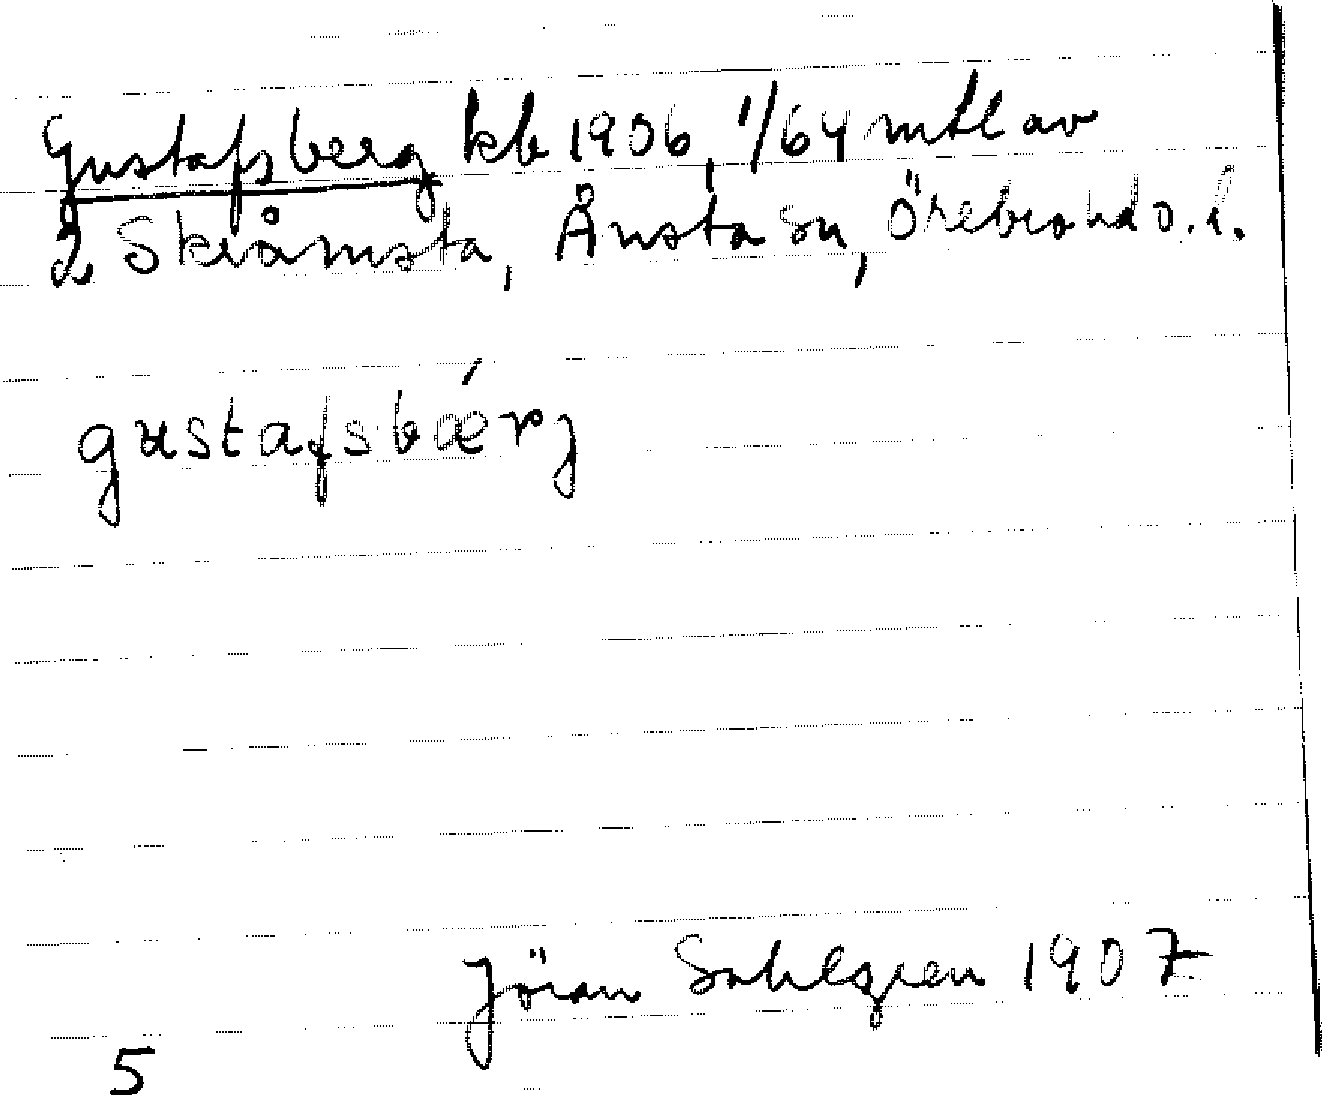 Gustafsberg kb 1906, 1/64 mtl av
2 Skråmsta, Ånsta sn, Örebro hd ö. l.
gustafsbærj
Jöran Sahlgren 1907
5